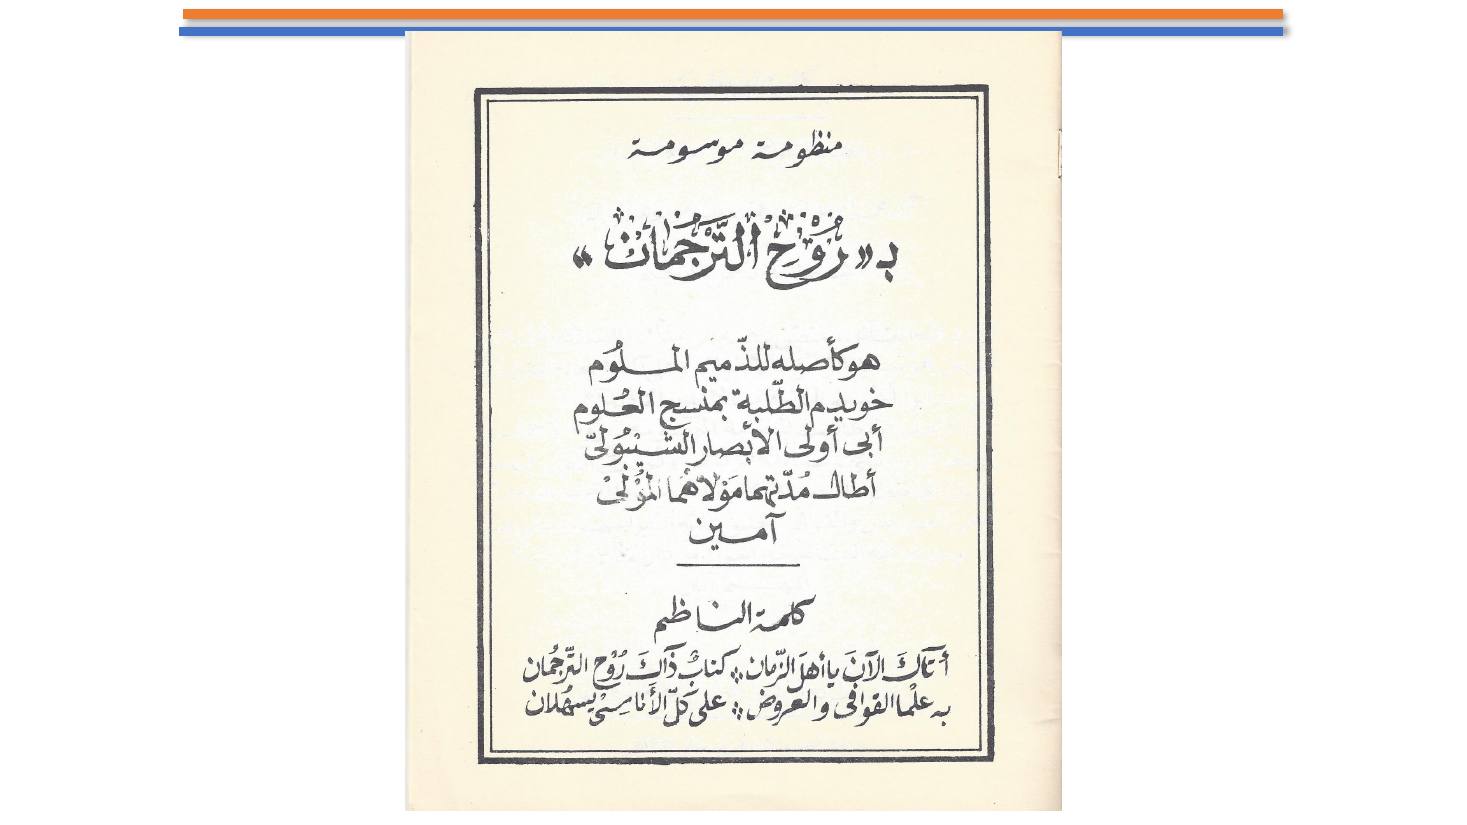 منظومة موسومة
بـ «رُوْحُ التَّرْجُمَانْ»
هو كأصله للذّميم الملُوم
خويدم الطّلبة بمنسج العُلوم
أبى أولى الأبصار السّنْبُولىّ
أطال مُدّتهما مَوْلاهُمَا المُوْلِىْ
آمين
كلمة الناظم
أتَاكَ الآنَ يا أهلَ الزّمان ** كتابٌ ذَاكَ رُوْح التّرجُمان
به علْما القوافى والعروض ** على كلّ الأنَاسِىْ يسهُلان